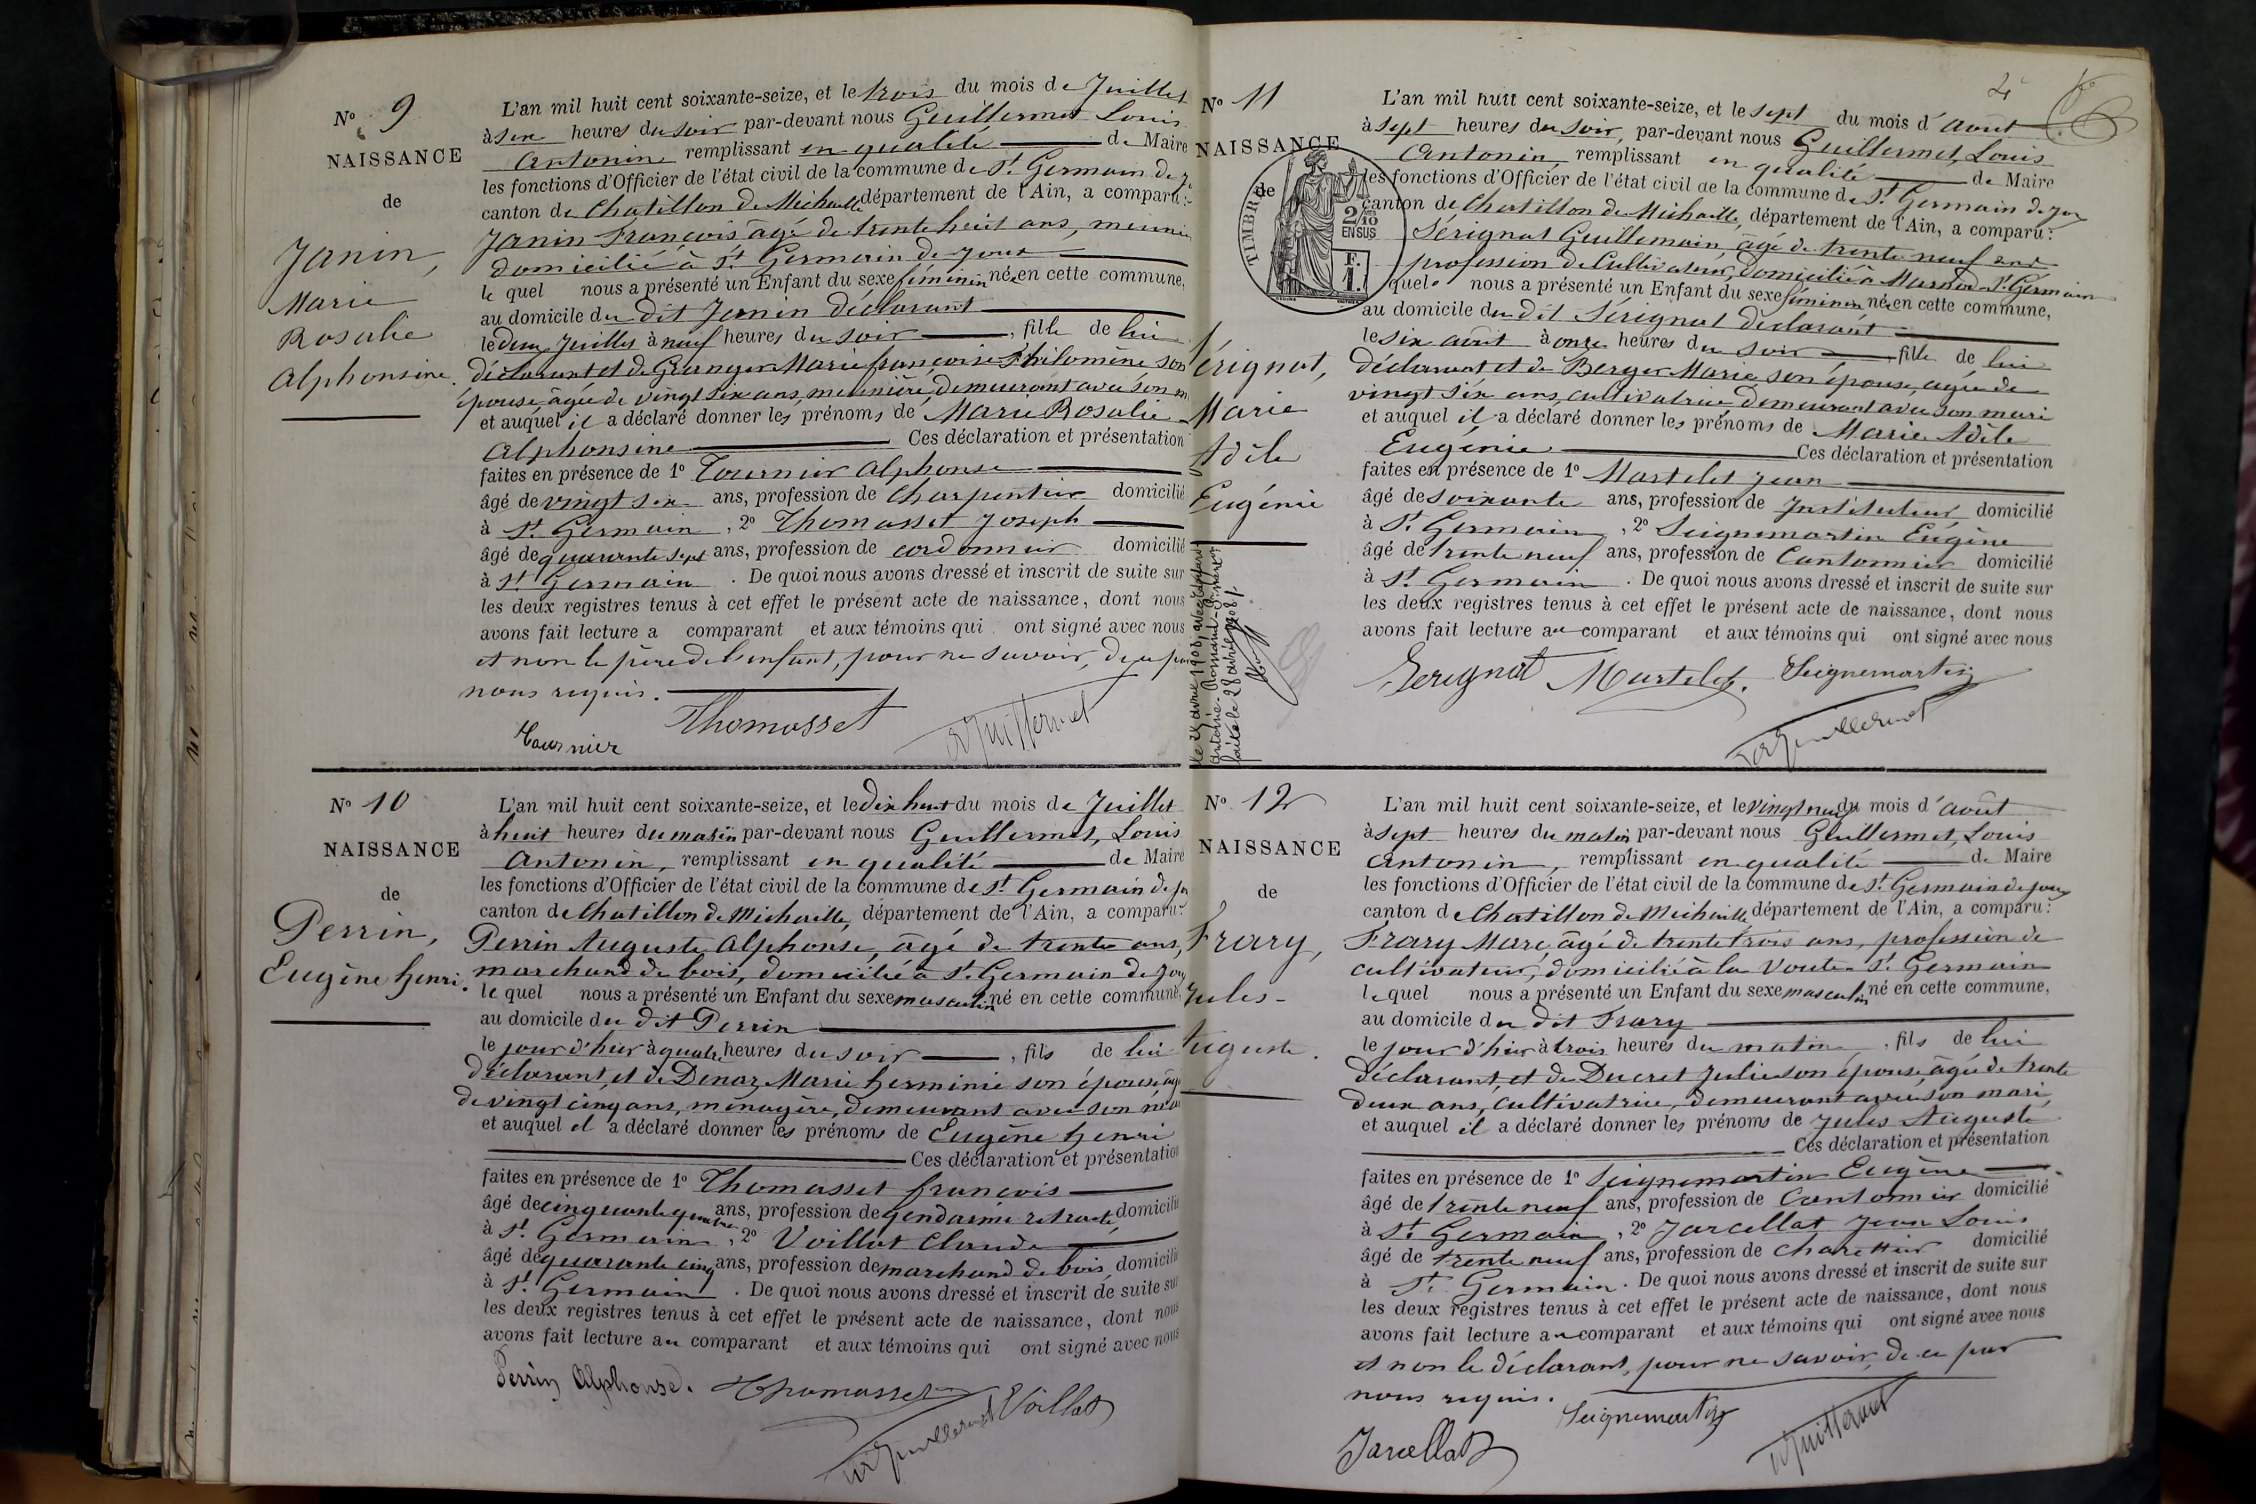 Nº 9
NAISSANCE
de
Janin,
Marie
Rosalie
Alphonsine.
L'an mil huit cent soixante-seize, et le trois du mois de Juillet
à six heures du soir par-devant nous Guillermet Louis
Antonin remplissant en qualité de Maire
les fonctions d'Officier de l'état civil de la commune de St Germain de
canton de Chatillon de Michaille département de l'Ain, a comparu :
Janin François âgé de trente huit ans, meunier
domicilié à St Germain de Joux
le quel nous a présenté un Enfant du sexe féminin née en cette commune,
au domicile du dit Janin déclarant
le deux Juillet à neuf heures du soir , fille de lui
déclarant et de Granger Marie françoise Philomène son
épouse âgée de vingt six ans, meunière, demeurant avec son
et auquel il a déclaré donner les prénoms de Marie Rosalie
Alphonsine Ces déclaration et présentation
faites en présence de 1º Tournier Alphonse
âgé de vingt six ans, profession de Charpentier domicilié
à St Germain , 2º Thomasset Joseph
âgé de quarante sept ans, profession de cordonnier domicilié
à St Germain . De quoi nous avons dressé et inscrit de suite sur
les deux registres tenus à cet effet le présent acte de naissance, dont nous
avons fait lecture a comparant et aux témoins qui ont signé avec nous
et non le père de l'enfant, pour ne savoir, de ce par
nous requis.
Tournier Thomasset Guillermet
Nº 10
NAISSANCE
de
Perrin,
Eugène henri.
L'an mil huit cent soixante-seize, et le Dix huit du mois de Juillet
à huit heures du matin par-devant nous Guillermet, Louis
Antonin, remplissant en qualité de Maire
les fonctions d'Officier de l'état civil de la commune de St Germain de
canton de Chatillon de Michaille, département de l'Ain, a comparu :
Perrin Auguste Alphonse, âgé de trente ans,
marchand de bois, domicilié à St Germain de Joux
le quel nous a présenté un Enfant du sexe masculin né en cette commune,
au domicile du dit Perrin
le jour d'hier à quatre heures du soir , fils de lui
déclarant, et de Denaz Marie herminie son épouse âgée
de vingt cinq ans, ménagère, demeurant avec son
et auquel il a déclaré donner les prénoms de Eugène henri
Ces déclaration et présentation
faites en présence de 1º Thomasset françois
âgé de cinquante quatre ans, profession de gendarme retraité, domicilié
à St Germain , 2º Voillat Claude
âgé de quarante cinq ans, profession de marchand de bois domicilié
à St Germain . De quoi nous avons dressé et inscrit de suite sur
les deux registres tenus à cet effet le présent acte de naissance, dont nous
avons fait lecture au comparant et aux témoins qui ont signé avec nous
Perrin Alphonse. Thomasset Voillat
Guillermet
Nº 11
NAISSANCE
de
TIMBRE
2/10
EN SUS
F.
1.
Sérignat,
Marie
Adèle
Eugénie
4
L'an mil huit cent soixante-seize, et le sept du mois d'août
à sept heures du soir, par-devant nous Guillermet, Louis
Antonin, remplissant en qualité de Maire
les fonctions d'Officier de l'état civil de la commune de St Germain de Joux
canton de Chatillon de Michaille, département de l'Ain, a comparu :
Sérignat Guillemain, âgé de trente neuf ans
profession de Cultivateur, domicilié à Marnod St Germain
quel nous a présenté un Enfant du sexe féminin née en cette commune,
au domicile du dit Sérignat déclarant
le six août à onze heures du soir , fille de lui
déclarant et de Berger Marie son épouse, agée de
vingt six ans, cultivatrice demeurant avec son mari
et auquel il a déclaré donner les prénoms de Marie Adèle
Eugénie Ces déclaration et présentation
faites en présence de 1º Martelet Jean
âgé de soixante ans, profession de Instituteur domicilié
à St Germain , 2º Seignemartin Eugène
âgé de trente neuf ans, profession de Cantonnier domicilié
à St Germain . De quoi nous avons dressé et inscrit de suite sur
les deux registres tenus à cet effet le présent acte de naissance, dont nous
avons fait lecture au comparant et aux témoins qui ont signé avec nous
Serignat Martelet. Seignemartin
Guillermet
Nº 12
NAISSANCE
de
Frary,
Jules-
Auguste.
L'an mil huit cent soixante-seize, et le vingt neuf du mois d'août
à sept heures du matin par-devant nous Guillermet, Louis
Antonin, remplissant en qualité de Maire
les fonctions d'Officier de l'état civil de la commune de St Germain de Joux
canton de Chatillon de Michaille département de l'Ain, a comparu :
Frary Marc, âgé de trente trois ans, profession de
cultivateur, domicilié à la Voute St Germain
le quel nous a présenté un Enfant du sexe masculin né en cette commune,
au domicile du dit Frary
le jour d'hier à trois heures du matin , fils de lui
déclarant et de Ducret Julie son épouse, âgée de trente
deux ans, cultivatrice, demeurant avec son mari,
et auquel il a déclaré donner les prénoms de Jules Auguste
Ces déclaration et présentation
faites en présence de 1º Seignemartin Eugène
âgé de trente neuf ans, profession de Cantonnier domicilié
à St Germain , 2º Jarcellat Jean Louis
âgé de trente neuf ans, profession de charettier domicilié
à St Germain . De quoi nous avons dressé et inscrit de suite sur
les deux registres tenus à cet effet le présent acte de naissance, dont nous
avons fait lecture au comparant et aux témoins qui ont signé avec nous
et non le déclarant, pour ne savoir, de ce par
nous requis.
Seignemartin Guillermet
Jarcellat